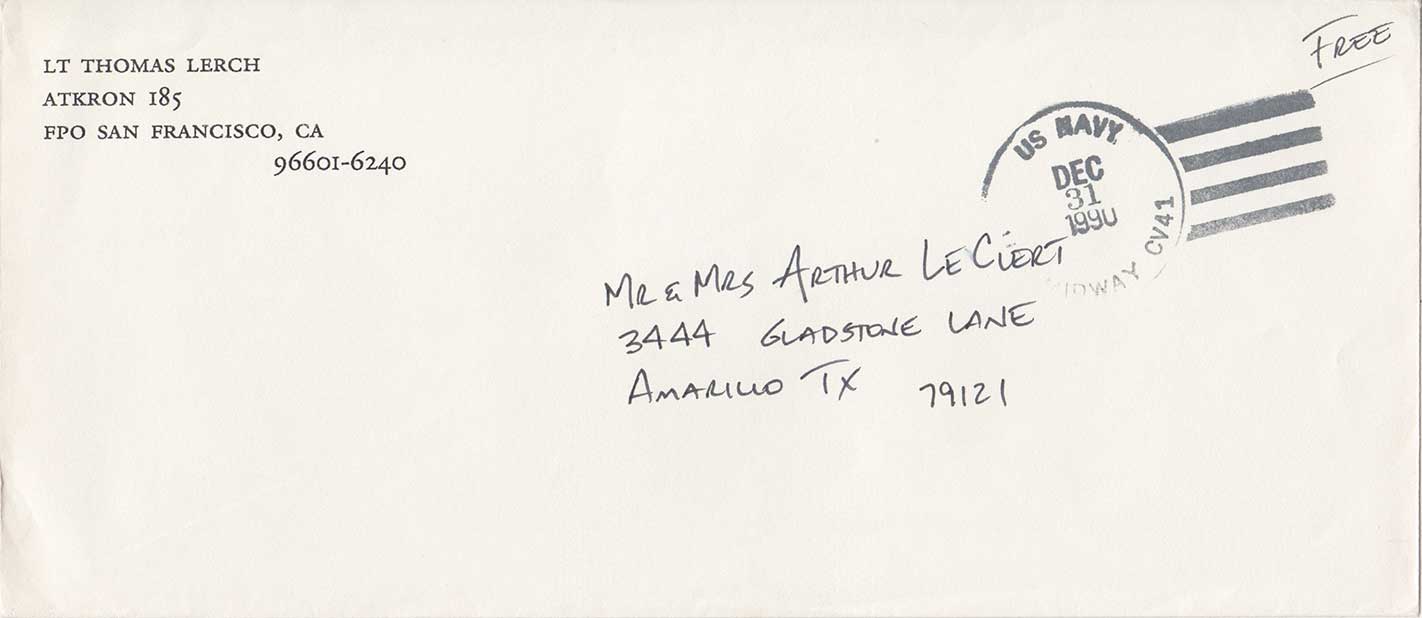 LT THOMAS LERCH
ATKRON 185
FPO SAN FRANCISCO, CA
96601-6240
FREE
US NAVY
DEC
31
1990
MIDWAY CV41
MR & MRS ARTHUR LECLERT
3444 GLADSTONE LANE
AMARILLO TX 79121